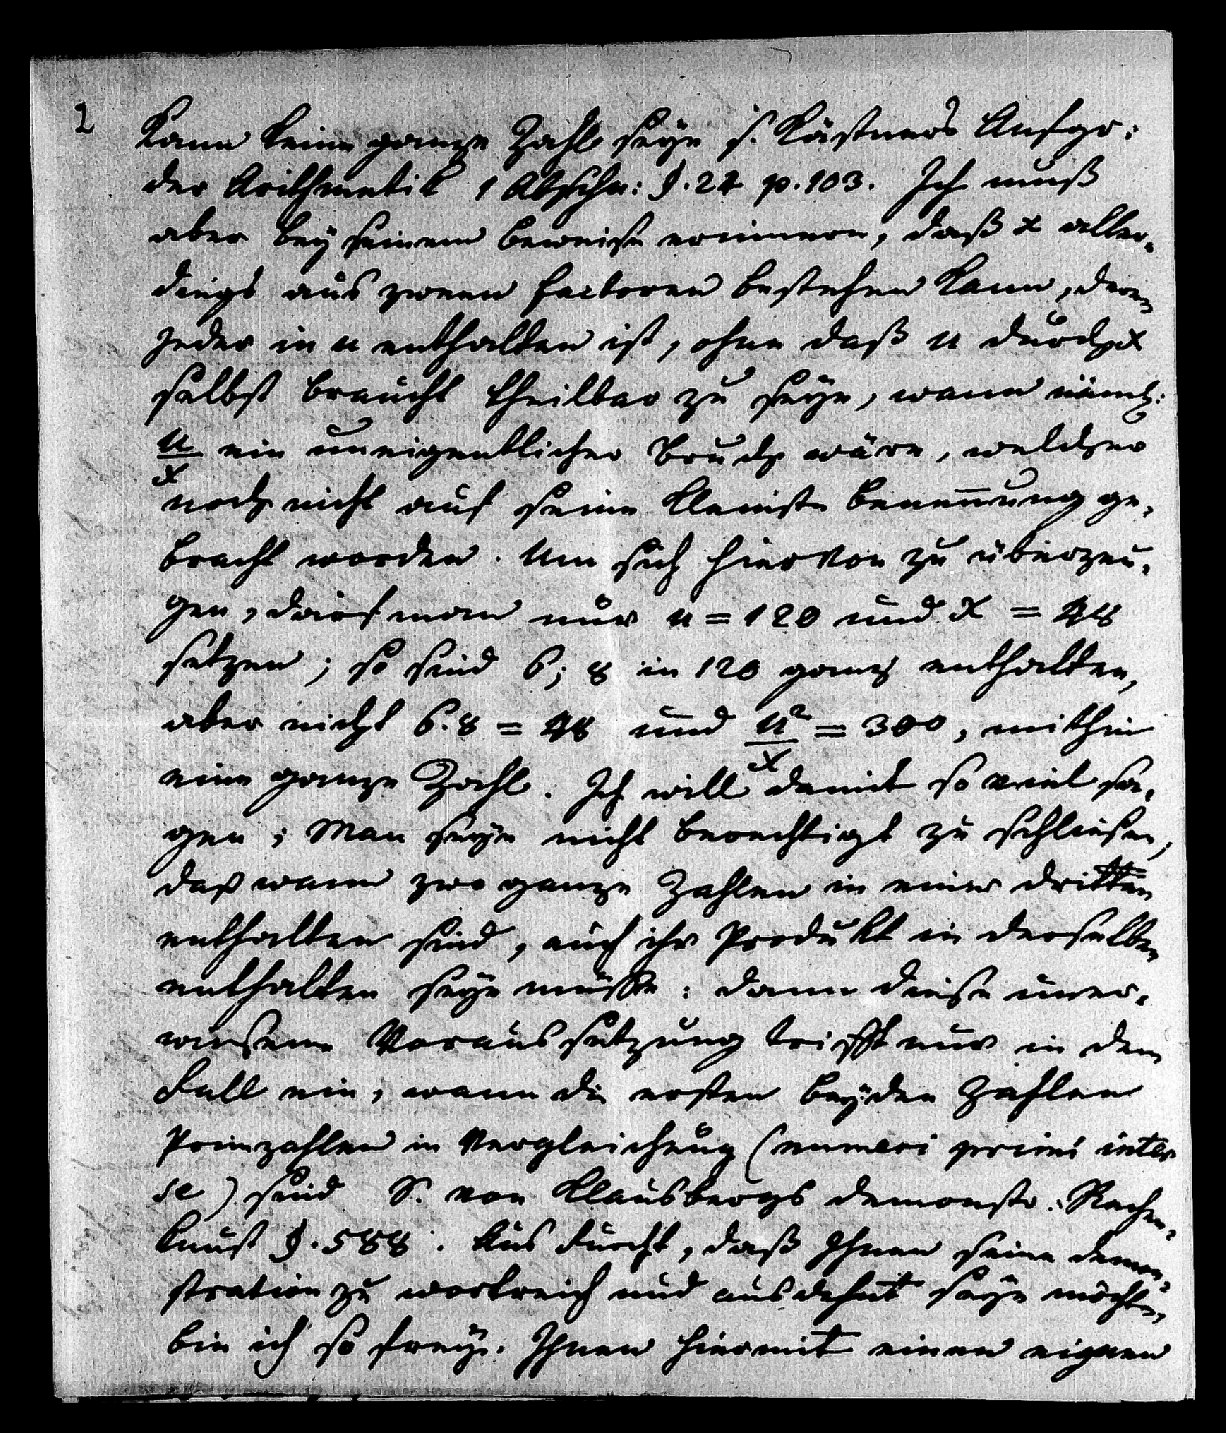 2
Kann keine ganze Zahl seyn s. Kästners Anfgr:
der Arithmetik 1 Abschn: §. 24 p. 103. Ich muß
aber bey seinem beweise erinnern, daß x aller-
dings aus zween factoren bestehen kann, deren
jeder in u enthalten ist, ohne daß u durch x
selbst braucht theilbar zu seyn, wann näml:
u/x ein uneigentlicher Bruch wäre, welcher
noch nicht auf seine kleinste benennung ge-
bracht worden. Um sich hiervon zu überzeu-
gen, darf man nur u = 120 und x = 48
setzen; so sind 6; 8 in 120 ganz enthalten,
aber nicht 6.8 = 48 und u²/x = 300, mithin
eine ganze Zahl. Ich will damit so viel sa-
gen; Man seye nicht berechtigt zu schliesen,
daß wann zwo ganze Zahlen in einer dritten
enthalten sind, auch ihr Produkt in derselben
enthalten seyn müsse: dann diese uner-
wiesene Voraussetzung trifft nur in dem
Fall ein, wann die ersten beyden Zahlen
Primzahlen in Vergleichung (numeri primi inter
se) sind S. von Clausbergs demonstr. Rechen-
kunst §. 588. Aus Furcht, daß Ihnen seine demon-
stration zu wortreich und ausdehnt seyn möchte,
bin ich so frey, Ihnen hiermit einen eignen